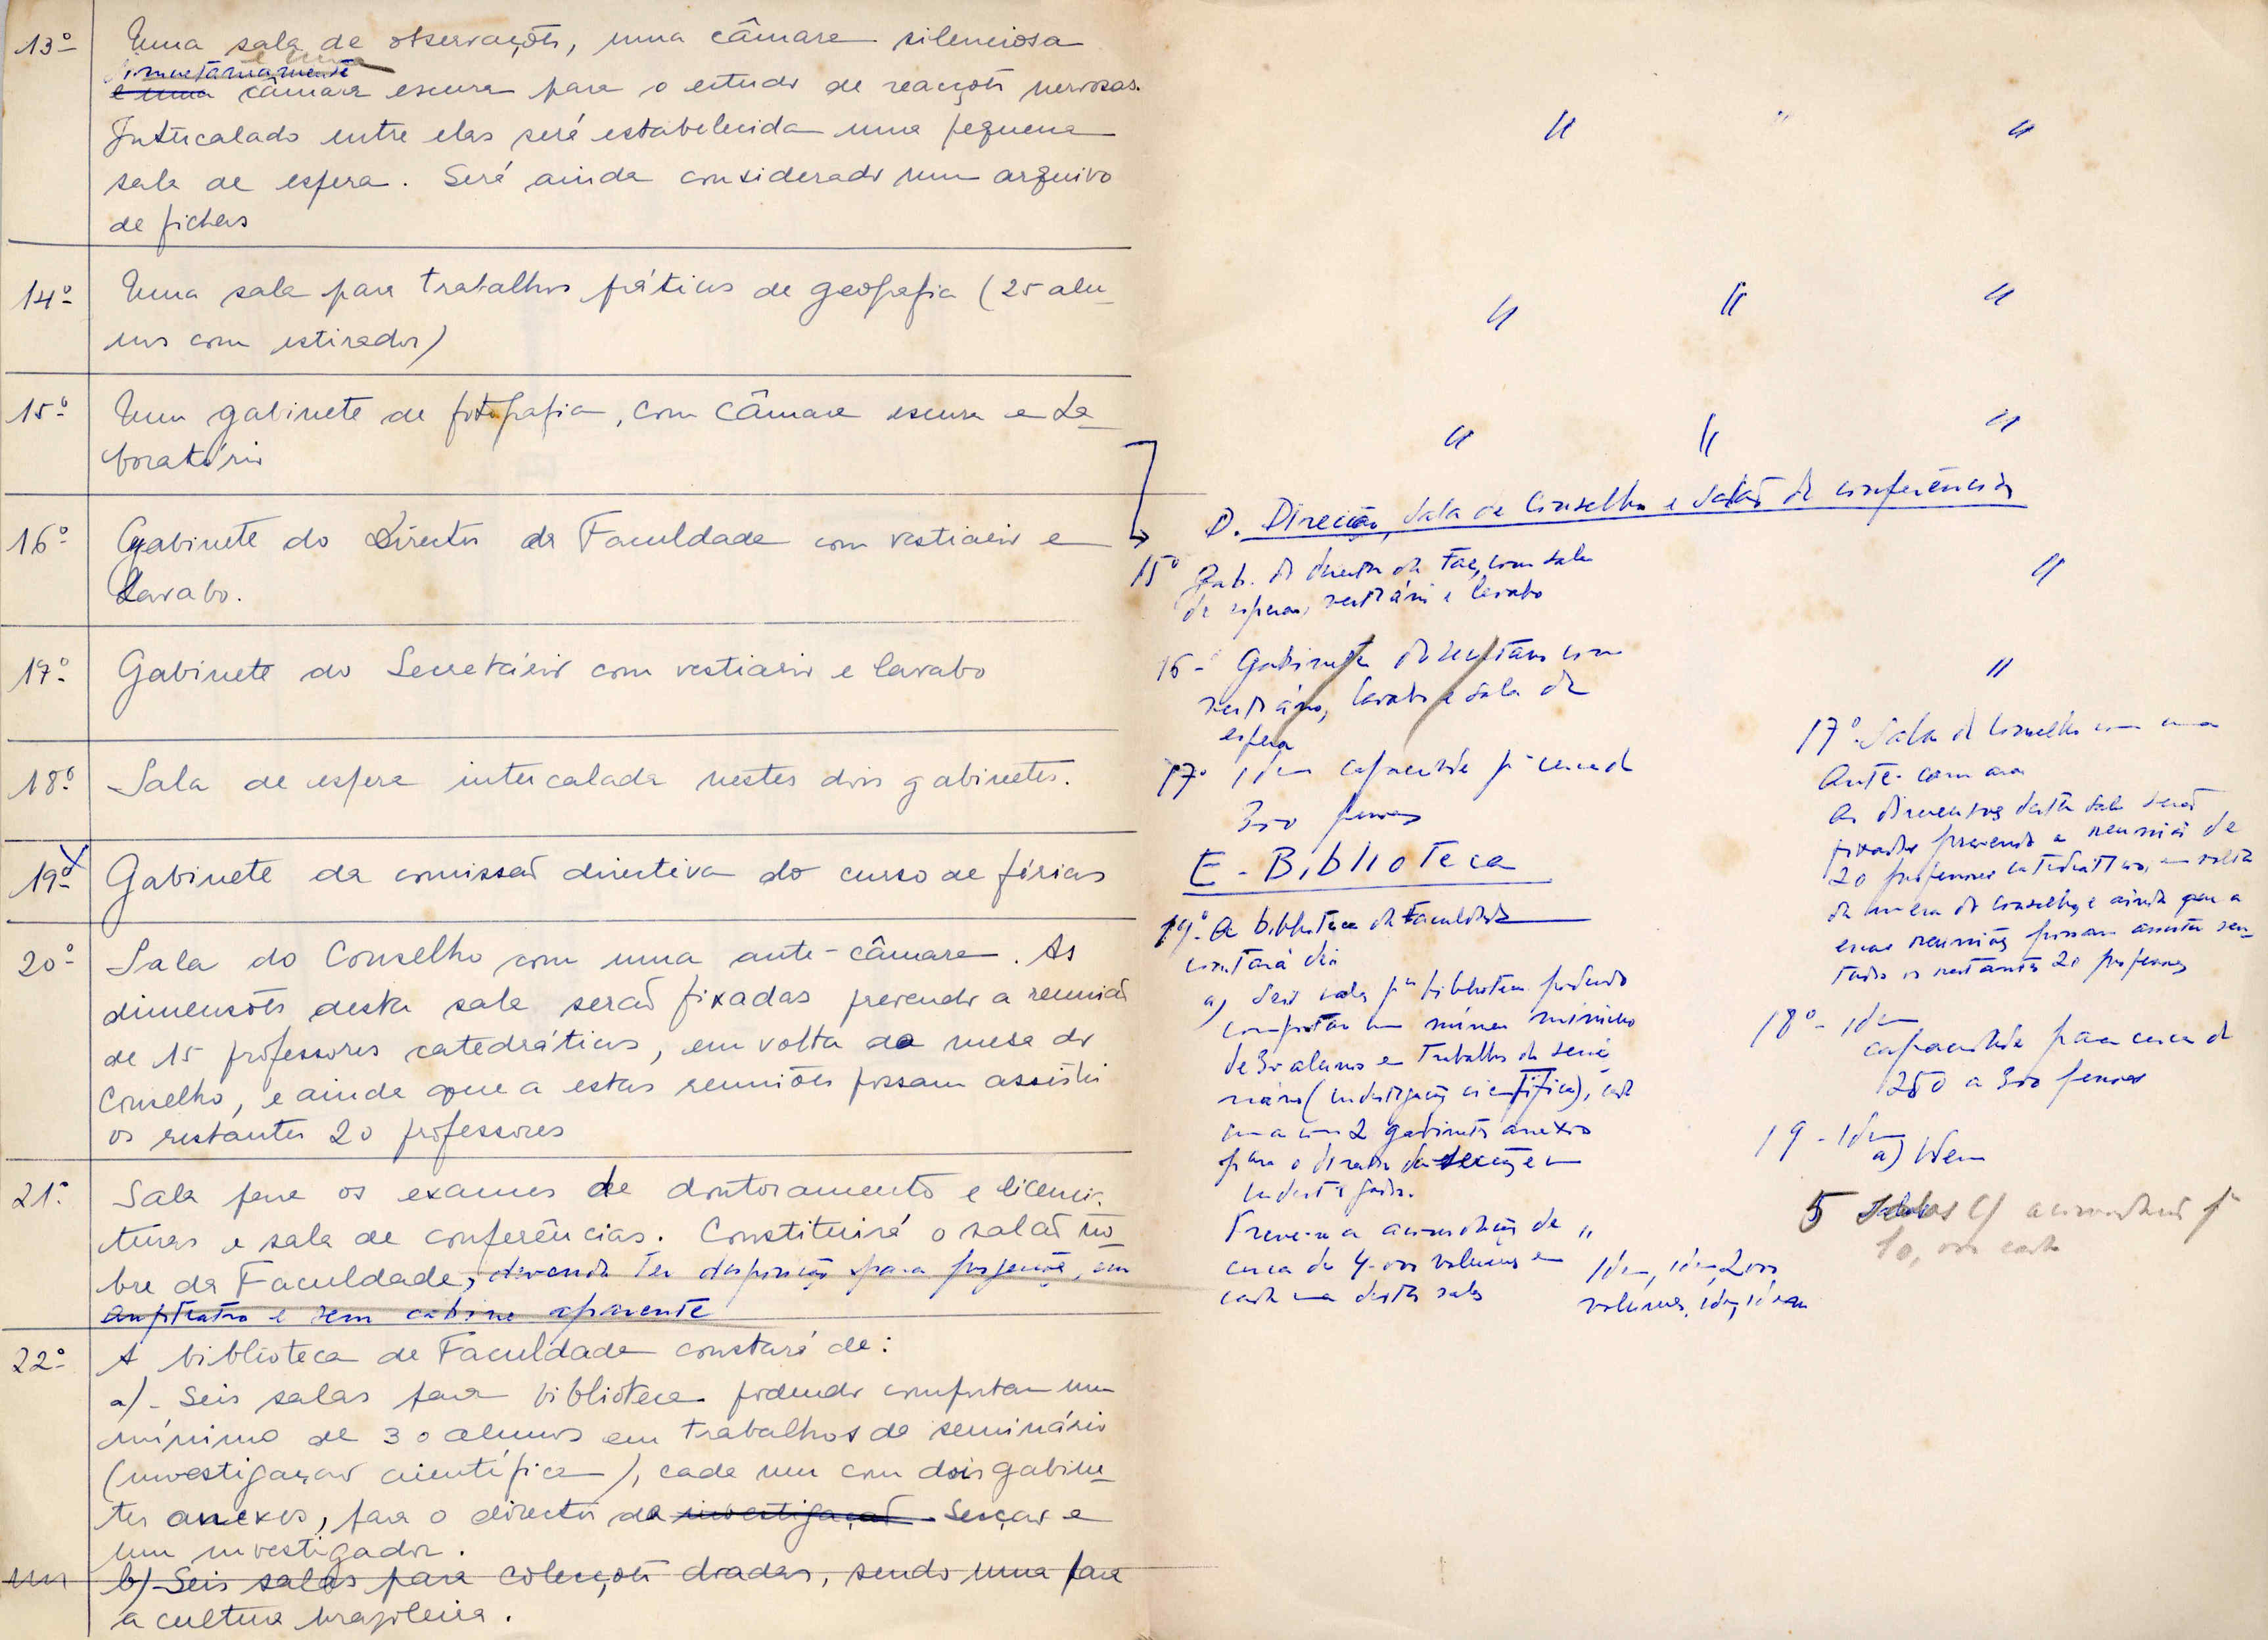 13º Uma sala de observações, uma câmara silenciosa
e uma
simultâneamente
e uma câmara escura para o estudo de reacções nervosas.
Intercalado entre elas será estabelecida uma pequena
sala de espera. Será ainda considerado um arquivo
de fichas
14º Uma sala para trabalhos práticos de geografia (25 alu-
nos com estirador)
15º Um gabinete de fotografia, com câmara escura e La-
boratório
16º Gabinete do Director da Faculdade com vestiário e
Lavabo.
17º Gabinete do Secretário com vestiario e lavabo
18º Sala de espera intercalada nestes dois gabinetes.
19º Gabinete da comissão directiva do curso de férias
20º Sala do Conselho com uma ante-câmara. As
dimensões desta sala serão fixadas prevendo a reunião
de 15 professores catedráticos, em volta da mesa do
Conselho, e ainda que a estas reuniões possam assistir
os restantes 20 professores
21º Sala para os exames de doutoramento e licencia-
turas e sala de conferências. Constituirá o salão no-
bre da Faculdade, devendo ter disposição para projecção, em
anfiteatro e sem cabine aparente
22º A biblioteca de Faculdade constará de:
a) - Seis salas para biblioteca podendo comportar um
mínimo de 30 alunos em trabalhos de seminário
(investigação científica), cada um com dois gabine-
tes anexos, para o director da investigação Secção e
um investigador.
b) - Seis salas para colecções doadas, sendo uma para
a cultura brasileira.
" " "
" " "
" " "
D. Direcção, Sala de Conselho e Salão de conferências
15º Gab. do director da Fac, com sala
de espera, vestiário e lavabo
"
16º Gabinete do secretário com
vestiário, lavabo e sala de
espera
"
17º idem capacidade pª cerca de
300 pessoas
E - Biblioteca
19º A biblioteca da Faculdade
constará de:
a) Seis salas pª biblioteca podendo
comportar um número mínimo
de 30 alunos em Trabalhos de semi
nário (investigação científica), cada
uma com 2 gabinetes anexos
para o director da secção e um
investigador.
Preve-se a acomodação de "
cerca de 4.000 volumes em
cada uma destas salas
17º Sala do Conselho com uma
Ante-camara
As dimensões desta sala serão
fixadas prevendo a reunião de
20 professores catedráticos, em volta
da mesa do Conselho, e ainda que a
essas reuniões possam assistir sen-
tados os restantes 20 professores
18º - idem
capacidade para cerca de
250 a 300 pessoas
19 - idem
a) Idem
5 salas c/ acomodação pª
10,000 cada
Idem, idem 2000
volumes, idem, idem